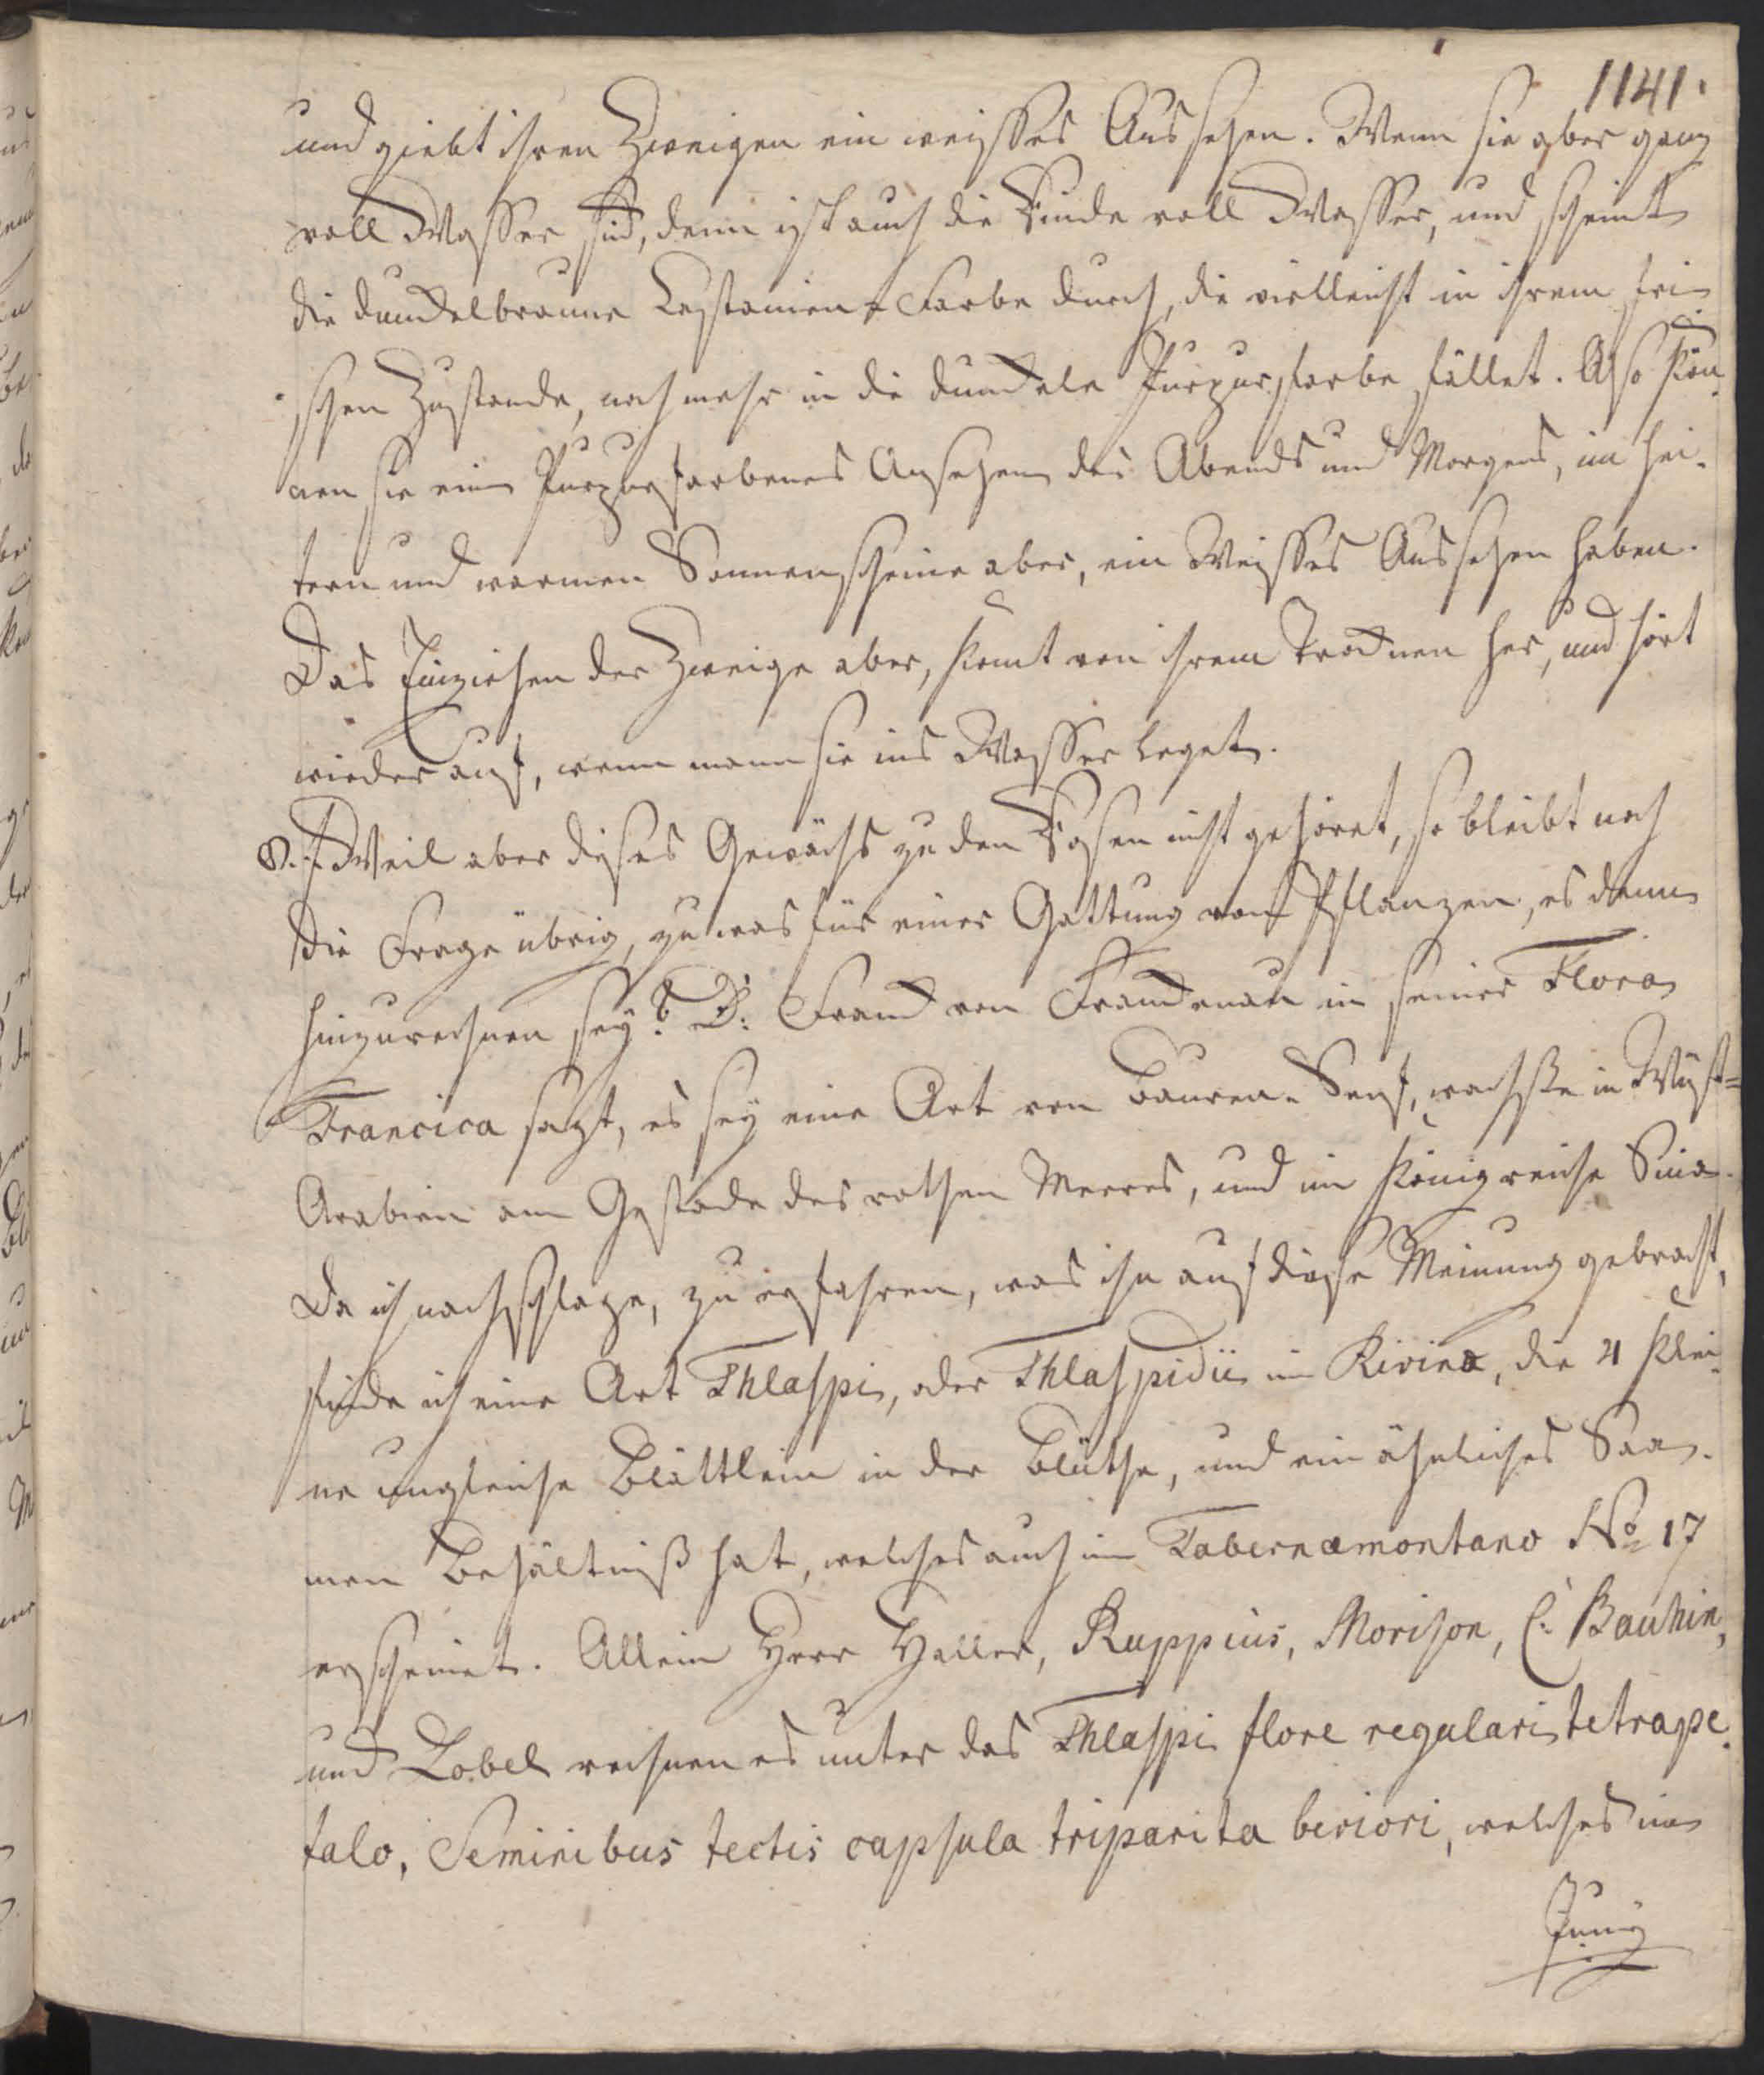 1141.
und giebt ihren Zweigen ein weisses Aussehen. Wenn sie aber ganz
voll Wasser sind, denn ist auch die Rinde voll Wasser, und scheint
die dunckelbraune Castanien-Farbe durch, die vielleicht in ihrem fri-
schen Zustande, noch mehr in die dunckele Purpurfarbe fället. Also kön-
nen sie ein Purpurfarbenes Ansehen des Abends und Morgens, im hei-
tern und warmen Sonnenscheine aber, ein Weisses Aussehen haben.
Das Einziehen der Zweige aber, komt von ihrem Trocknen her, und hört
wieder auf, wenn mann sie ins Wasser leget.
8. Weil aber dieses Gewächs zu den Rosen nicht gehöret, so bleibt noch
die Frage übrig, zu was für einer Gattung von Pflanzen, es denn
hinzurechnen sey? D: Franck von Franckenau in seiner Flora
Francica sagt, es sey eine Art von Bauren-Senf, wachse in Wüst=
Arabien am Gestade des rothen Meeres, und im Königreiche
Da ich nachschlage, zu erfahren, was ihn auf diese Meinung gebracht,
finde ich eine Art Thlaspi, oder Thlaspidii im Rivino, die 4 klei-
ne ungleiche Blättlein in der Blüthe, und ein ähnliches Saa-
men Behältniß hat, welches auch im Tabernæmontano No 17
erscheinet. Allein Herr Haller, Ruppius, Morison, C: Bauhin,
und Lobel rechnen es unter das Thlaspi flore regulari tetrape-
talo, Seminibus tectis capsula triparita beviori, welches im
Juny